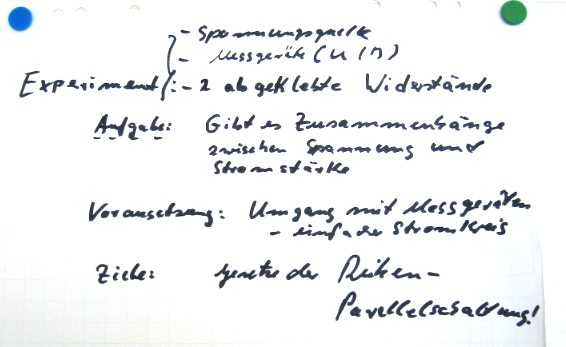 - Spannungsquelle
- Messgeräte (U/I)
Experiment: - 2 abgeklebte Widerstände
Aufgabe: Gibt es Zusammenhänge
zwischen Spannung und
Stromstärke
Voraussetzung: Umgang mit Messgeräten
- einfacher Stromkreis
Ziele: Gesetze der Reihen-
Parallelschaltung!